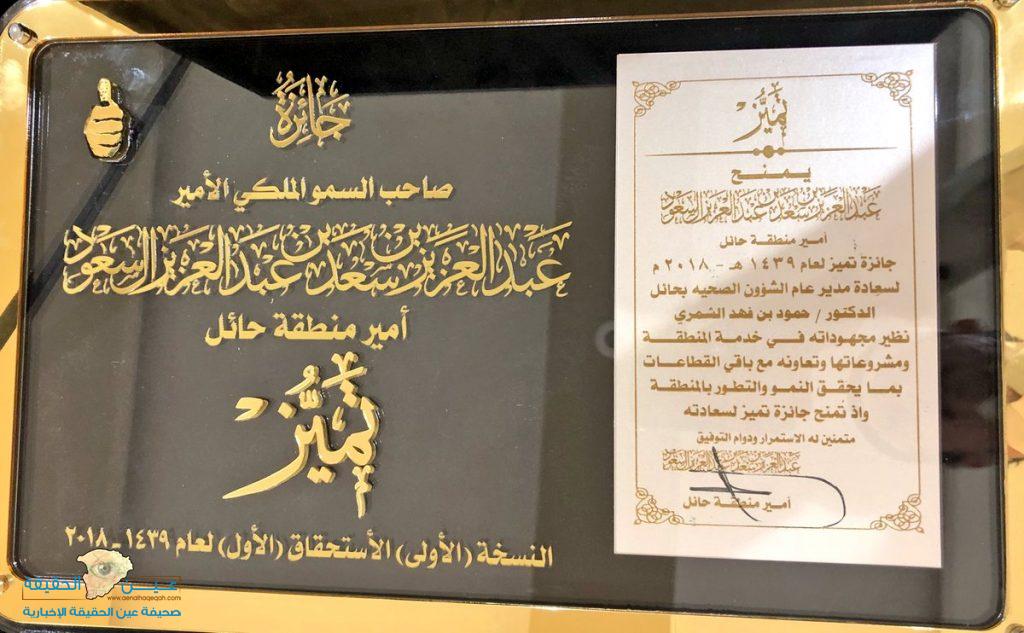 جائزة
صاحب السمو الملكي الأمير
عبدالعزيز بن سعد بن عبدالعزيز آل سعود
أمير منطقة حائل
تميُّز
النسخة (الأولى) الأستحقاق (الأول) لعام ١٤٣٩ - ٢٠١٨
تميُّز
يمنح
عبدالعزيز بن سعد بن عبدالعزيز آل سعود
أمير منطقة حائل
جائزة تميز لعام ١٤٣٩ هـ - ٢٠١٨ م
لسعادة مدير عام الشؤون الصحيه بحائل
الدكتور / حمود بن فهد الشمري
نظير مجهوداته في خدمة المنطقة
ومشروعاتها وتعاونه مع باقي القطاعات
بما يحقق النمو والتطور بالمنطقة
واذ تُمنح جائزة تميز لسعادته
متمنين له الاستمرار ودوام التوفيق
عبدالعزيز بن سعد بن عبدالعزيز آل سعود
أمير منطقة حائل
عين الحقيقة
www.aenalhaqeqah.com
صحيفة عين الحقيقة الإخبارية